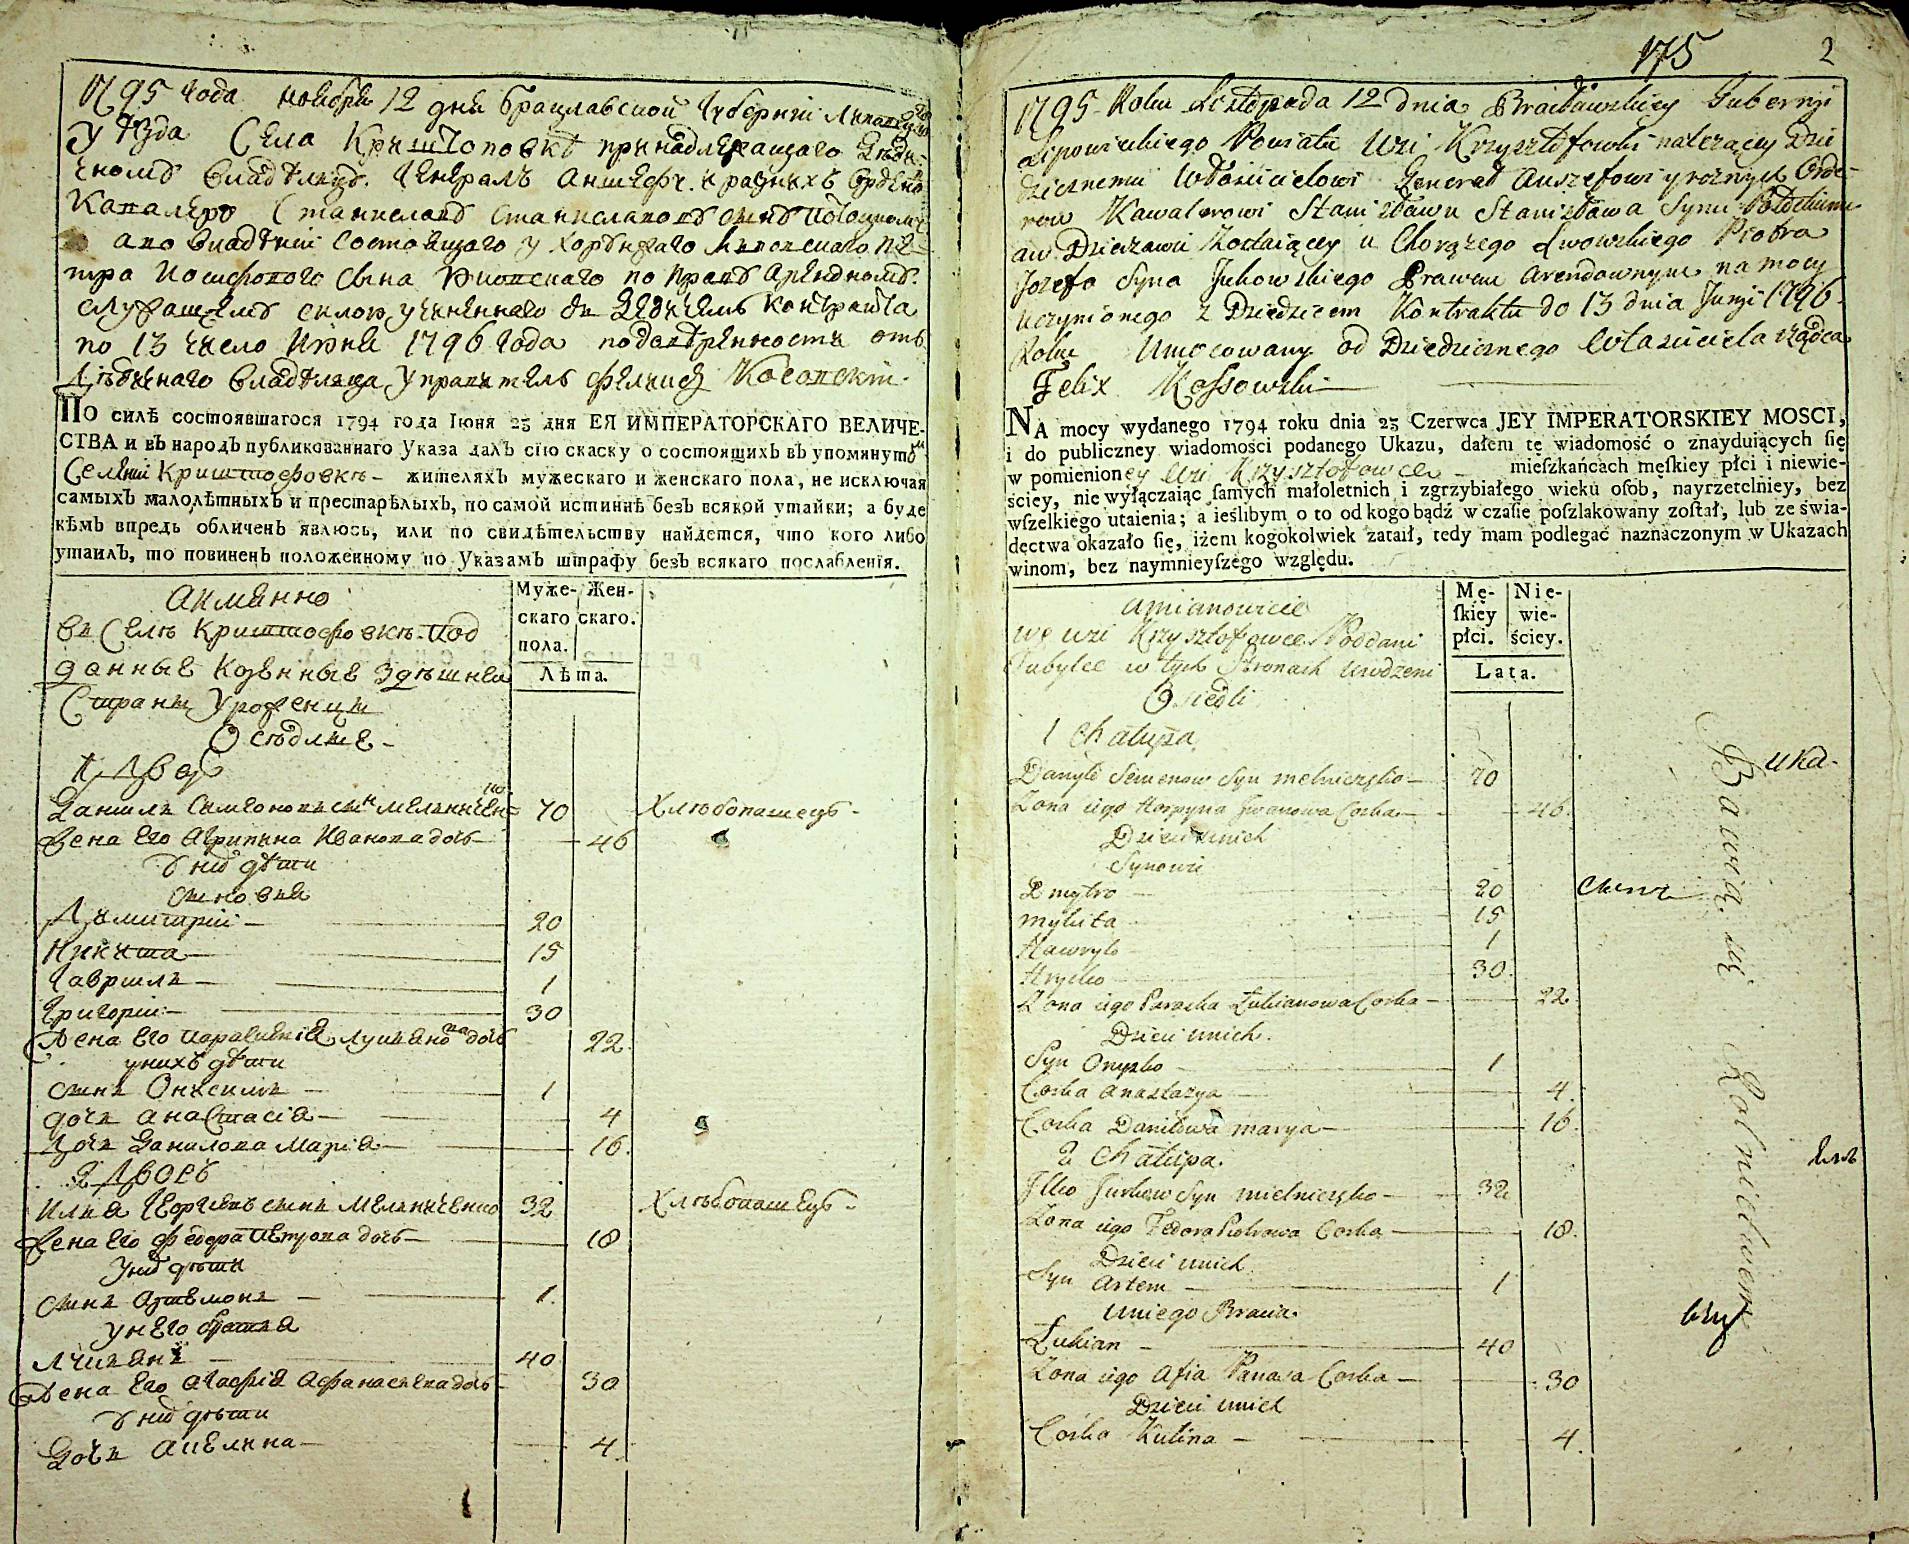 1795 года ноября 12 дня Брацлавской Губернiи Липовецкаго
уѣзда Села Криштоповкѣ принадлежащаго Дѣди-
чномъ владѣлцу. Генералъ Аншефу. и разныхъ Орденовъ
Кавалеру Станиславъ Станиславовъ сынъ Потоцкому
а во владѣнiи состоящаго у хорунжаго Львовскаго Пе-
тра Иосифового сына по праву арендномъ.
силою учиненнаго съ Дедичемъ контракта
по 13 число Июня 1796 года по доверенности отъ
Дѣдичнаго владѣлца управитель Феликсъ Косовскiй.
ПО силѣ состоявшагося 1794 года Iюня 23 дня ЕЯ ИМПЕРАТОРСКАГО ВЕЛИЧЕ-
СТВА и въ народъ публикованнаго Указа далъ сiю скаску о состоящихъ въ упомянутомъ
Селенiи Криштофовкѣ - жителяхъ мужескаго и женскаго пола, не исключая
самыхъ малолѣтныхъ и престарѣлыхъ, по самой истиннѣ безъ всякой утайки; а буде
кѣмъ впредь обличенъ явлюсь, или по свидѣтельству найдется, что кого либо
утаилъ, то повиненъ положенному по Указамъ штрафу безъ всякаго послабленiя.
Муже- Жен-
скаго скаго.
пола.
Лѣта.
Аименно
въ Селѣ Криштофовкѣ под
данные Козенные здѣшнея
Страны Уроженцы
Осѣдлые -
1 Дворъ
Данила Семеновъ сынъ Мелниченко 70 Хлѣбопашецъ -
Жена Его Агрипина Иванова дочь - 46
У нихъ дѣти
сыновья
Димитрiй - 20
Никита - 15
Гаврила - 1
Григорiй - 30
Жена Его Параскевiя Лукьянова дочь 22.
у нихъ дѣти
сынъ Онисимъ - 1
дочь Анастасiя - 4
Дочь Данилова Марiя - 16.
2 Дворъ
Илья Георгiевъ сынъ Мелниченко 32 Хлѣбопашецъ -
Жена Его Федора Петрова дочь - 18
У нихъ дѣти
сынъ Артемонъ - 1.
у него братья
Лукьянъ - 40
Жена Его Агафiя Афанасьева дочь - 30
У нихъ дѣти
Дочь Акелина - 4.
175 2
1795 Roku Listopada 12 dnia Bracławskiey Gubernyi
Lipowieckiego Powiatu Wsi Krzysztofowki należący Dzie
dzicznemu Włościcielowi Generał Anszefowi y roznych Orde-
row Kawalerowi Stanisławu Stanisława Synu Potockiemu
aw Dzierzawu zostaiącey u Chorążego Lwowskiego Piotra
Jozefa Syna Jukowskiego Prawem arendownym na mocy
uczynionego z Dziedzicem Kontraktu do 13 dnia Junji 1796.
Roku Umocowany od Dziedzicznego Właściciela rządca
Felix Kossowski
NA mocy wydanego 1794 roku dnia 23 Czerwca JEY IMPERATORSKIEY MOSCI,
i do publiczney wiadomości podanego Ukazu, dałem tę wiadomość o znayduiących się
w pomienioney wsi Krzysztofowce - mieszkańcach męskiey płci i niewie-
ściey, nie wyłączaiąc samych małoletnich i zgrzybiałego wieku osób, nayrzetelniey, bez
wszelkiego utaienia; a ieślibym o to od kogo bądź w czasie poszlakowany został, lub ze świa-
dectwa okazało się, iżem kogokolwiek zataił, tedy mam podlegać naznaczonym w Ukazach
winom, bez naymnieyszego względu.
Mę- Nie-
skiey wie-
płci. ściey.
Lata.
Amianowicie
we wsi Krzysztofowce Poddani
Tubylce w tych Stronach urodzeni
Osiedli
1 Chałupa
Danyło Semenow Syn melniczęko - 70
Zona iego Horpyna Iwanowa Corka - 46.
Dzieci u nich
Synowie
Dmytro - 20
Mykita 15
Hawryło 1
Hryćko 30.
Zona iego Paraska Łukianowa Corka - 22
Dzieci unich.
Syn Onyśko - 1
Corka Anastazya 4.
Corka Daniłowa Marya - 16.
2 Chałupa.
Ilko Jurkow Syn mielniczęko - 32
Zona iego Fedora Piotrowa Corka 18.
Dzieci unich
Syn Artem 1
Uniego Bracia.
Łukian - 40
Zona iego Afia Panasa Corka - 30
Dzieci unich
Corka Kulina - 4.
Bawią się Rolnictwem